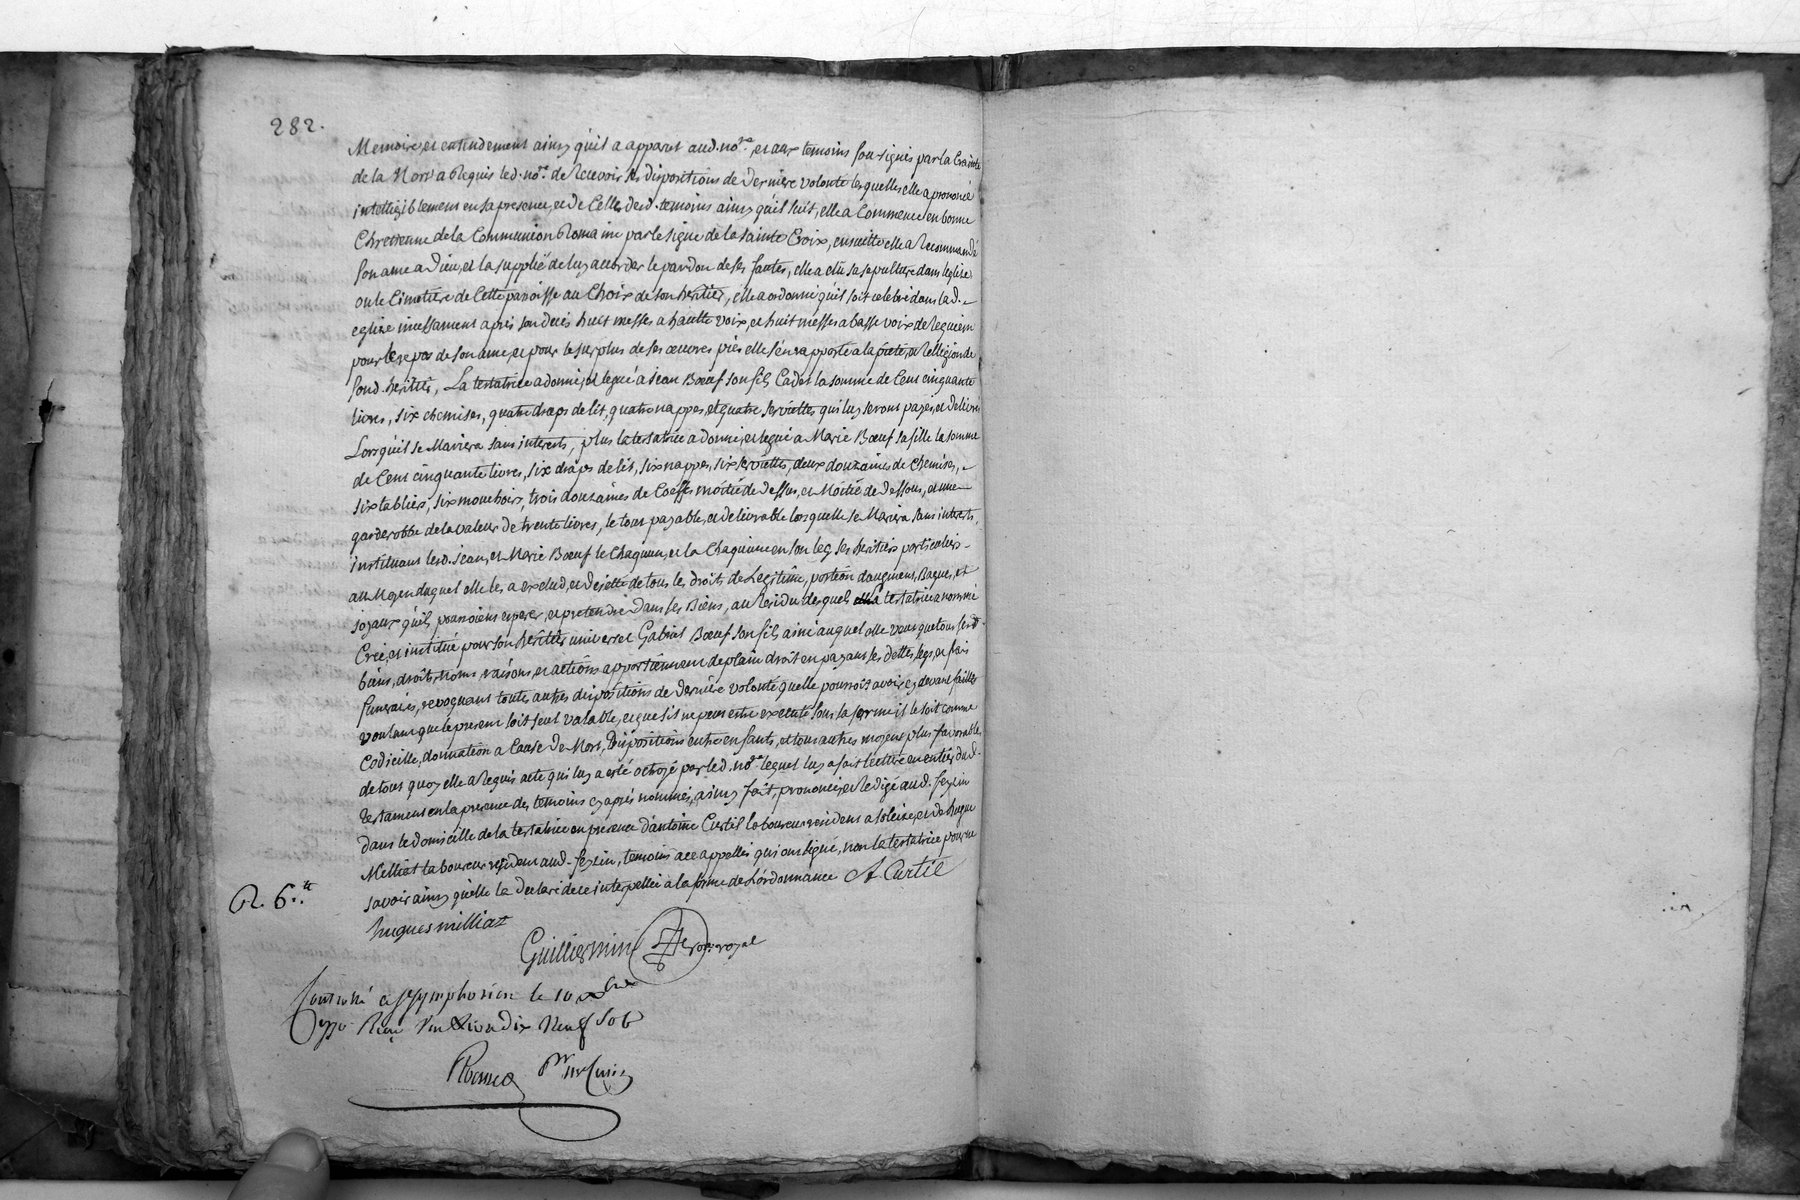 282.
Memoire, et entendement ainsy qu'il a apparut aud. no.re, et aux temoins sou-signés par la Crainte
de la Mort a Requis led. no.re de Recevoir ses dispositions de derniere volonté lesquelles elle a prononcé
intelligiblement en sa presence, et de Celle desd. temoins ainsy qu'il suit, elle a Commencé en bonne
Chretienne de la Communion Romaine par le signe de la sainte Croix, ensuitte elle a Recommandé
son ame a Dieu, et la supplié de luy accorder le pardon de ses fautes, elle a elû sa sepulture dans leglise
ou le Cimetiere de Cette paroisse au Choix de son heritier, elle a ordonné qu'il soit celebré dans lad.
eglise incessament aprés son decés huit messes a haulte voix, et huit messes a basse voix de Requiem
pour le repos de son ame, et pour le surplus de ses œuvres pies elle s'en rapporte a la pieté, et Relligion de
sond. heritier, La testatrice a donné, et legué a Jean Bœuf son fils Cadet la somme de Cent cinquante
livres, six chemises, quatre draps de lit, quatre nappes, et quatre serviettes qui luy seront payés, et delivrés
Lorsqu'il se Mariera sans interets, plus la testatrice a donné, et legué a Marie Bœuf sa fille la somme
de Cent cinquante livres, six draps de lit, six nappes, six serviettes, deux douzaines de chemises,
six tabliers, six mouchoirs, trois douzaines de Coeffes moitié de dessus, et Moitié de dessous, et une
garderobbe de la valeur de trente livres, le tout payable, et delivrable lorsquelle se Mariera sans interets,
instituant lesd. Jean, et Marie Bœuf le Chaqu'un, et la Chaqu'une en son leg ses heritiers particuliers
au Moyen duquel elle les a exclud, et dejetté de tous les droits de Legitime, portion d'augment, Bagues, et
joyaux qu'ils pourroient esperer, et pretendre dans ses Biens, au Residu desquels la testatrice a nommé
Créé, et institué pour son heritier universel Gabriel Bœuf son fils ainé auquel elle veut que tous sesd.
biens, droits, noms, raisons, et actions appartiennent de plain droit en payant ses dettes, legs, et frais
funeraires, revoquant toutes autres dispositions de derniere volonté quelle pourroit avoir cy devant faittes
voulant que le present soit seul valable, et que s'il ne peut estre executé sous la forme il le soit comme
Codicille, donnation a Cause de Mort, Dispositions entre enfants, et tous autres moyens plus favorables
de tout quoy elle a Requis acte qui luy a esté octroyé par led. no.re lequel luy a fait lecture en entier dud.
testament en la presence des temoins cy aprés nommés, ainsy fait, prononcé, et Redigé aud. feyzin
dans le domicille de la testatrice en presence d'antoine Curtil laboureur resident a soleize, et de hugue
Milliat laboureur resident aud. feyzin, temoins a ce appellés qui ont signé, non la testatrice pour ne
savoir ainsy quelle la declaré de ce interpellée à la forme de Lordonnance A Curtil
R. 6.tt
hugues milliat
Guilliermin no.re royal
Controllé a St symphorien le 10
Reçu Vint dix Neuf Sols